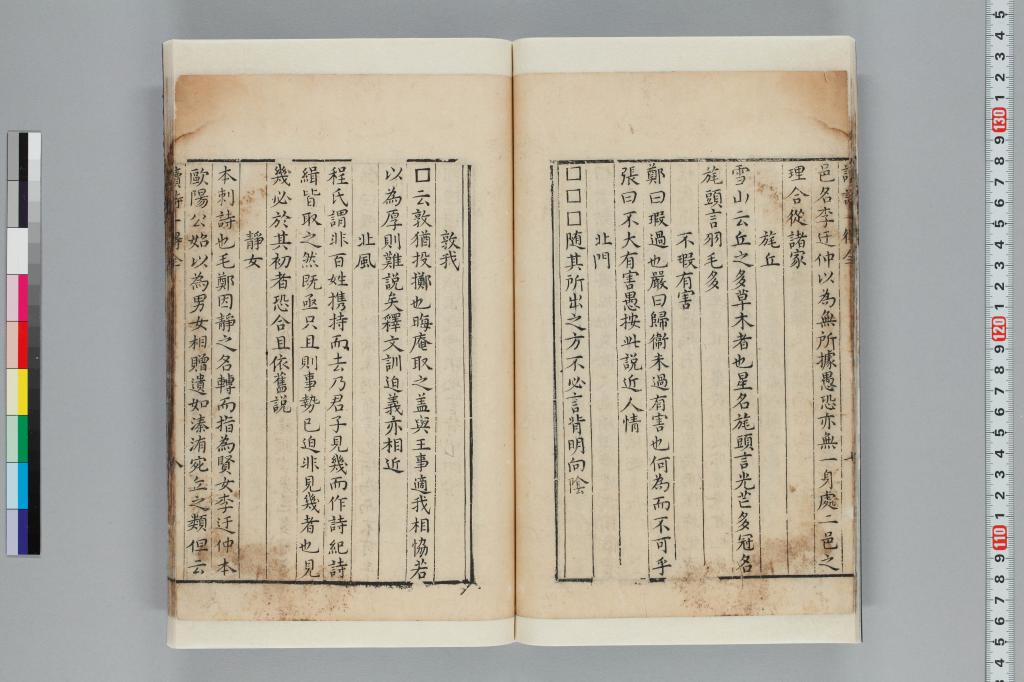 邑名李迂仲以為無所據愚恐亦無一身處二邑之
理合從諸家
旄丘
雪山云丘之多草木者也星名旄頭言光芒多冠名
旄頭言羽毛多
不瑕有害
鄭曰瑕過也嚴曰歸衞未過有害也何為而不可乎
張曰不大有害愚按此説近人情
北門
□□□随其所出之方不必言背明向陰
敦我
□云敦猶投擲也晦庵取之盖與王事適我相恊若
以為厚則難説矣釋文訓迫義亦相近
北風
程氏謂非百姓携持而去乃君子見幾而作詩紀詩
緝皆取之然既亟只且則事勢已迫非見幾者也見
幾必於其初者恐合且依舊説
靜女
本刺詩也毛鄭因靜之名轉而指為賢女李迂仲本
歐陽公始以為男女相贈遺如溱洧宛丘之類但云
讀詩一得全
八